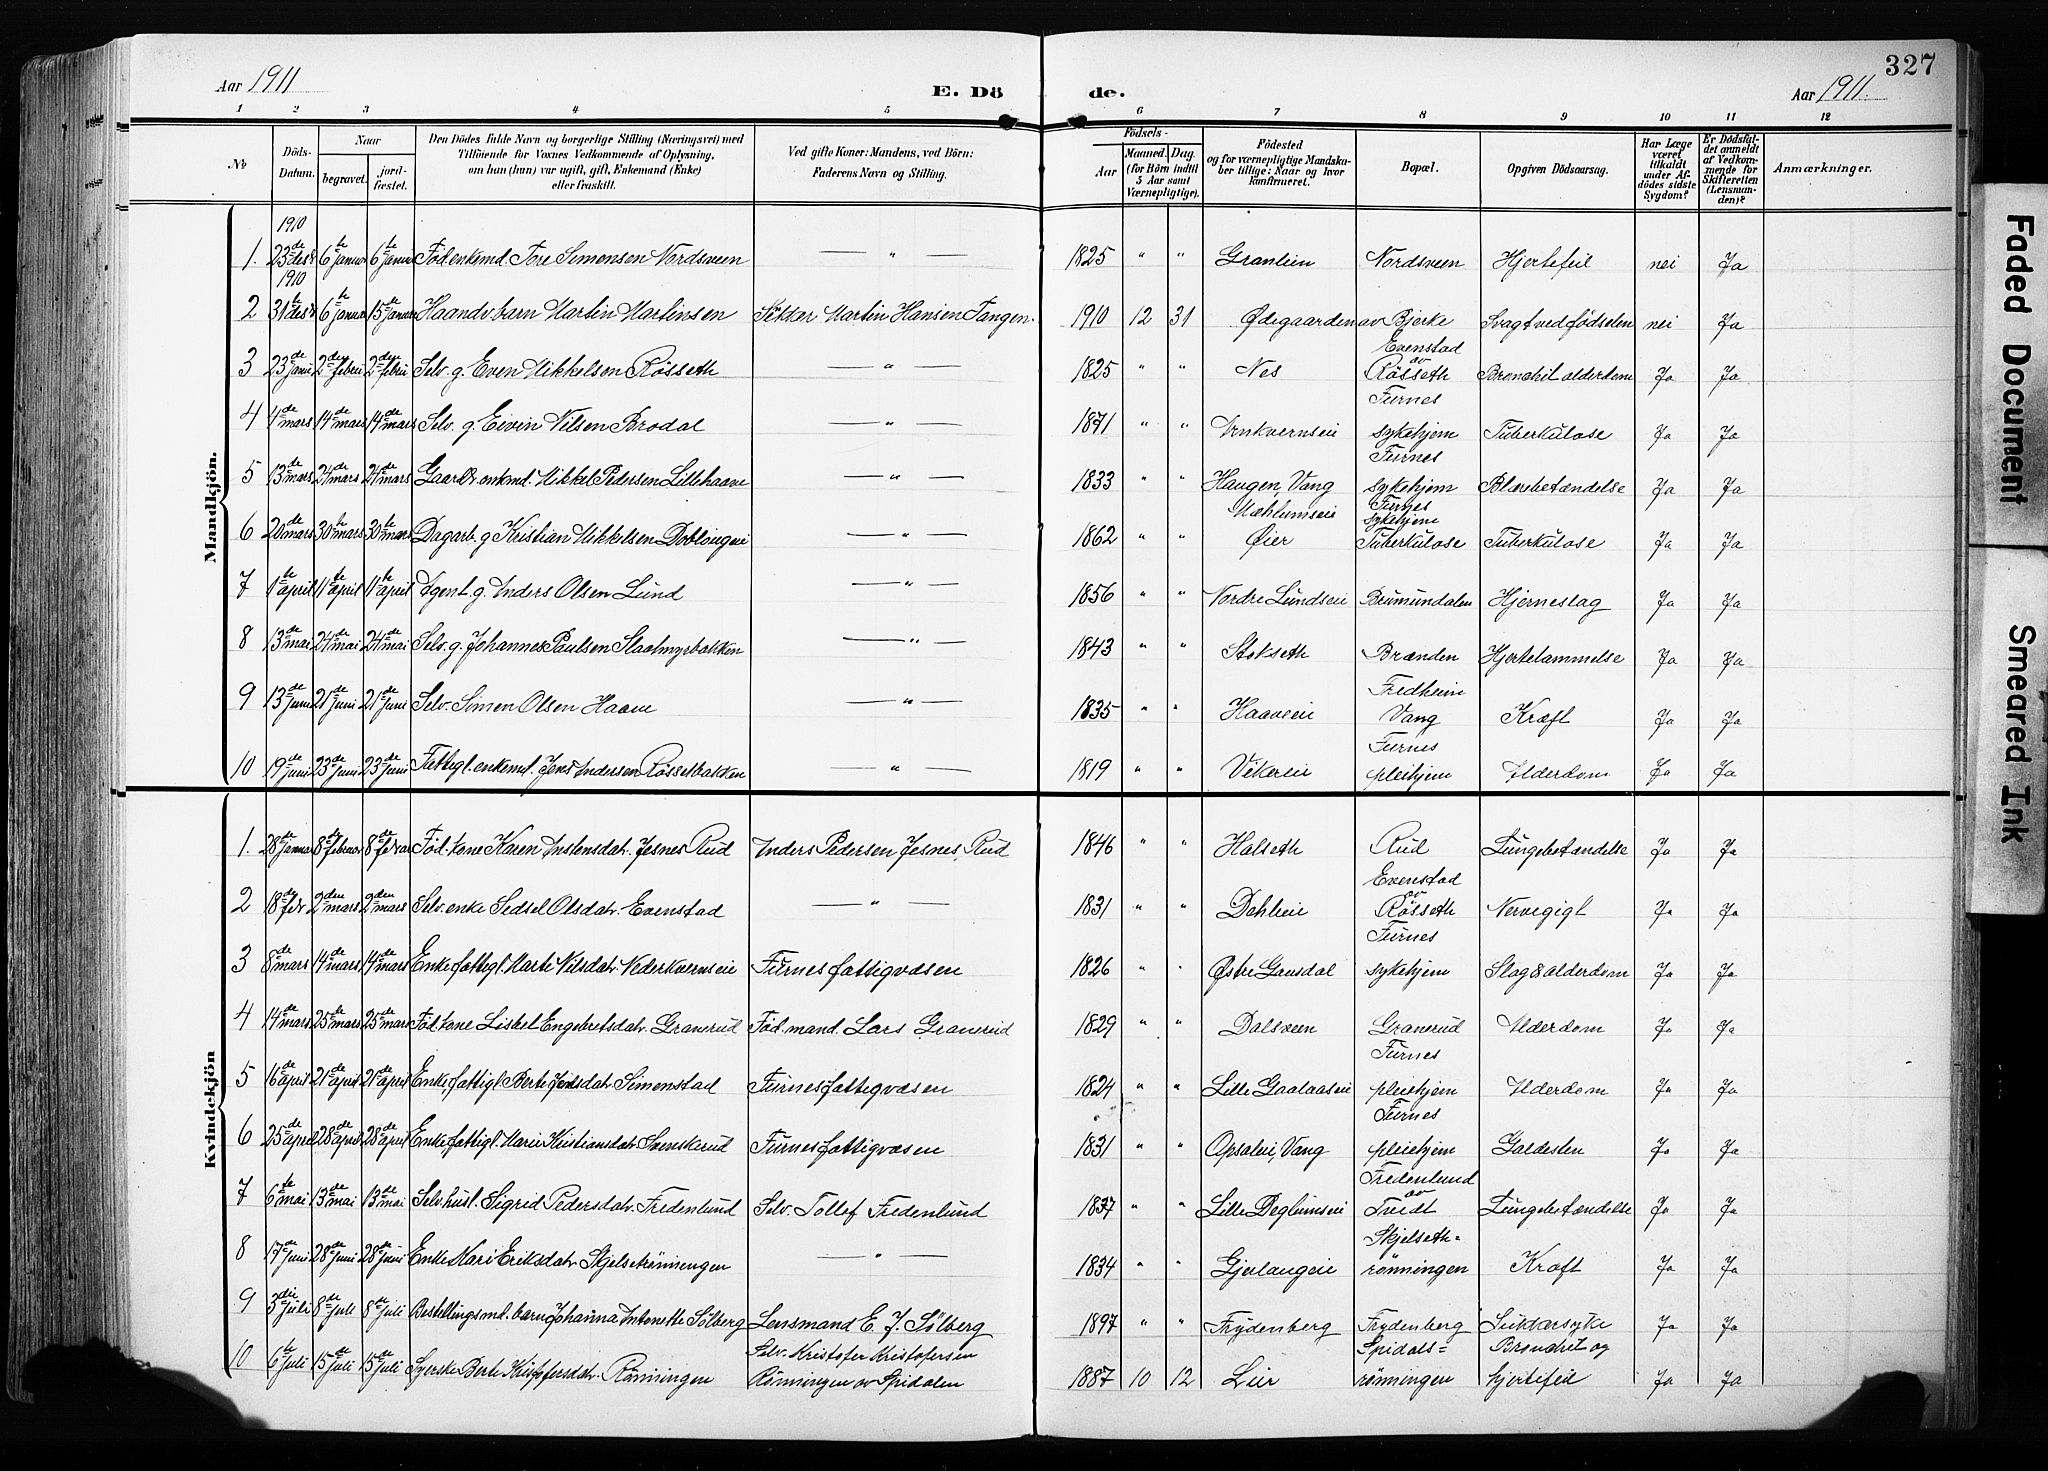 327
Aar 1911
E. Dö de.
Aar 1911.
1 2 3 4 5 6 7 8 9 10 11 12
No
Döds-
Datum.
Naar
begravet.
jord-
fæstet.
Den Dödes fulde Navn og borgerlige Stilling (Næringsvei) med
Tilföiende for Voxnes Vedkommende af Oplysning,
om han (hun) var ugift, gift, Enkemand (Enke)
eller fraskilt.
Ved gifte Koner: Mandens, ved Börn:
Faderens Navn og Stilling.
Födsels-
Aar
Maaned. Dag.
(for Börn indtil
5 Aar samt
Værnepligtige).
Födested
og for værnepligtige Mandska-
ber tillige: Naar og hvor
konfirmeret.
Bopæl.
Opgiven Dödsaarsag.
Har Læge
været
tilkaldt
under Af-
dödes sidste
Sygdom?
Er Dödsfal-
det anmeldt
af Vedkom-
mende for
Skifteretten
(Lensman-
den)?
Anmærkninger.
Mandkjön.
1910
1. 23de des. 6te januar 6te januar Föd. enkmd. Tore Simensen Nordsveen — " — 1825 " " Granlien Nordsveen Hjertefeil nei Ja
1910
2 31te des. 6te januar 15de januar Haandv. barn Martin Martinsen Sekkar Martin Hansen Tangen. 1910 12 31 Ødegaarden av Bjerke Svagt ved fødselen nei Ja
Evenstad
av
3 23de janu 2den febru 2den febru Selv. g. Even Mikkelsen Røsseth — " — 1825 " " Nes Røsseth Bronchit alderdom Ja Ja
Furnes
4 4de mars 14de mars 14de mars Selv. g. Eivin Nilsen Brodal — " — 1871 " " sykehjem Tuberkulose Ja Ja
Furnes
5 13de mars 21de mars 21de mars Gaardb. enkmd. Mikkel Pedersen Lillehaave — " — 1833 " " Haugen, Vang sykehjem Blærebetændelse Ja Ja
Mæhlumseie Furnes
sykehjem
6 20de mars 30te mars 30te mars Dagarb. g Kristian Mikkelsen Doblougeie — " — 1862 " " Øier Tuberkulose Tuberkulose Ja Ja
7 1te april 11te april 11te april Agent g. Anders Olsen Lund — " — 1856 " " Nordre Lundseie Brumunddalen Hjerneslag Ja Ja
8 13de mai 24de mai 24de mai Selv. g. Johannes Paulsen Slaatmyrbakken — " — 1843 " " Stokseth Brænden Hjertelammelse Ja Ja
Fredheim
9 13de juni 21de juni 21de juni Selv. Simen Olsen Haave — " — 1835 " " Haaveeie Vang Kræft Ja Ja
Furnes
10 19de juni 23de juni 23de juni Fattigl. enkmd. Jens Andersen Røssetbakken — " — 1819 " " Vikereie pleiehjem Alderdom Ja Ja
Kvindekjön
1. 28de januar 8de februar 8de februar Föd. kone Karen Anstensdatr. Jesnes Rud Anders Pedersen Jesnes, Rud 1846 " " Halseth Rud Lungebetændelse Ja Ja
Evenstad
av
2 18de febr 2den mars 2den mars Selv. enke Sedsel Olsdatr. Evenstad — " — 1831 " " Dehlieie Røsseth Nervegigt Ja Ja
Furnes
3 8de mars 14de mars 14de mars Enke fattigl. Marte Nilsdatr. Nederkvernseie Furnes fattigvæsen 1826 " " Østre Gausdal sykehjem Slag & alderdom Ja Ja
4 14de mars 25de mars 25de mars Föd. kone Lisbel Engebretsdatr. Granerud Föd. mand. Lars Granerud 1829 " " Dalsveen Granerud Alderdom Ja Ja
Furnes
5 16de april 21de april 21de april Enke, fattigl. Berte Jensdatr. Simenstad Furnes fattigvæsen 1824 " " Lille Gaalaaseie pleiehjem Alderdom Ja Ja
Furnes
6 25de april 28de april 28de april Enke, fattigl. Marie Kristiansdatr. Svenskerud Furnes fattigvæsen 1831 " " Opsaleie, Vang pleiehjem Galdesten Ja Ja
Fredenlund
av
7 6te mai 13de mai 13de mai Selv. hust. Sigrid Pedersdatr. Fredenlund Selv. Tollef Fredenlund 1837 " " Lille Deglumseie Tveidt Lungebetændelse Ja Ja
Skjelseth=
8 17de juni 28de juni 28de juni Enke Mari Eriksdatr Skjelserönningen — " — 1834 " " Gjerlaugeie rönningen Kræft Ja Ja
9 3die juli 8de juli 8de juli Bestillingsmd. barn Johanna Antonette Sølberg Lensmand E. J. Sølberg 1897 " " Frydenberg Frydenberg Sukkersyke Ja Ja
Selv. Kristofer Kristofersen Spidals= Bronchit og
10 6te juli 15de juli 15de juli Syerske Berte Kristofersdatr. Rönningen Rönningen av Spidalen 1887 10 12 Lier rönningen hjertefeil Ja Ja
Faded Document
Smeared Ink